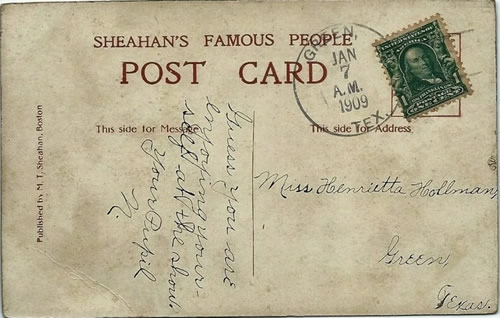 SHEAHAN'S FAMOUS PEOPLE
POST CARD
GREEN,
JAN
7
A.M.
1909
TEX.
This side for Message
This side for Address
Guess you are
enjoying your-
self at the show.
Your Pupil
N.
Miss Henrietta Hollman,
Green,
Texas.
Published by M. T. Sheahan, Boston